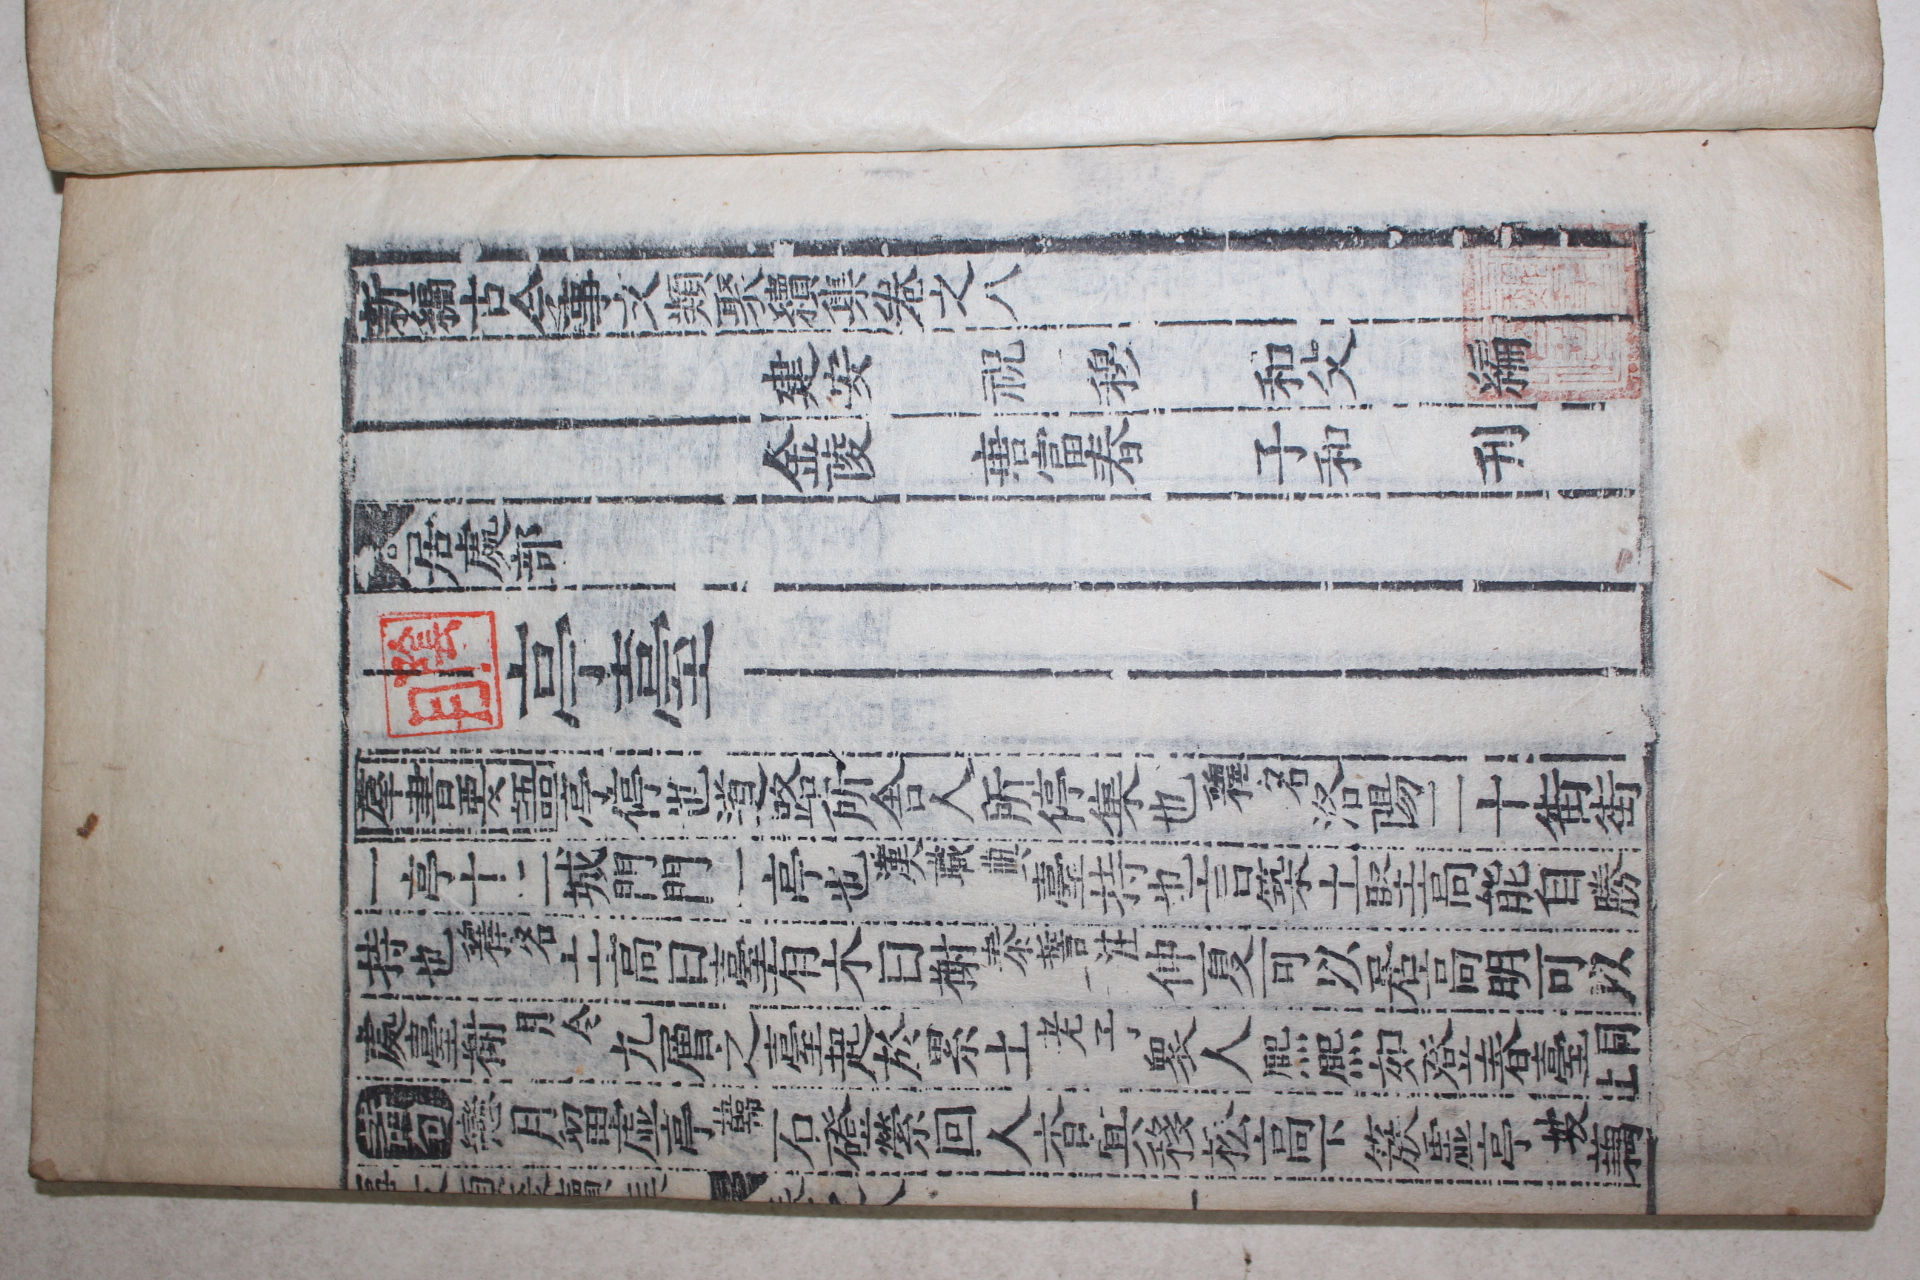 新編古今事文類聚續集卷之八
建安 祝 穆 和父 編
金陵 唐富春 子和 刊
居處部
亭臺
羣書要語亭停也道路所舍人所停集也釋名洛陽二十街街
一亭十二城門門一亭也漢職典臺持也言築土堅高能自勝
持也釋名土高曰臺有木曰榭泰誓注仲夏可以居高明可以
處臺榭月令九層之臺起於累土老子衆人熙熙如登春臺同上
古詩句戀月留虛亭韓石磴縈回人杳冥移松高下簇虛亭坡藕
卷之八
一